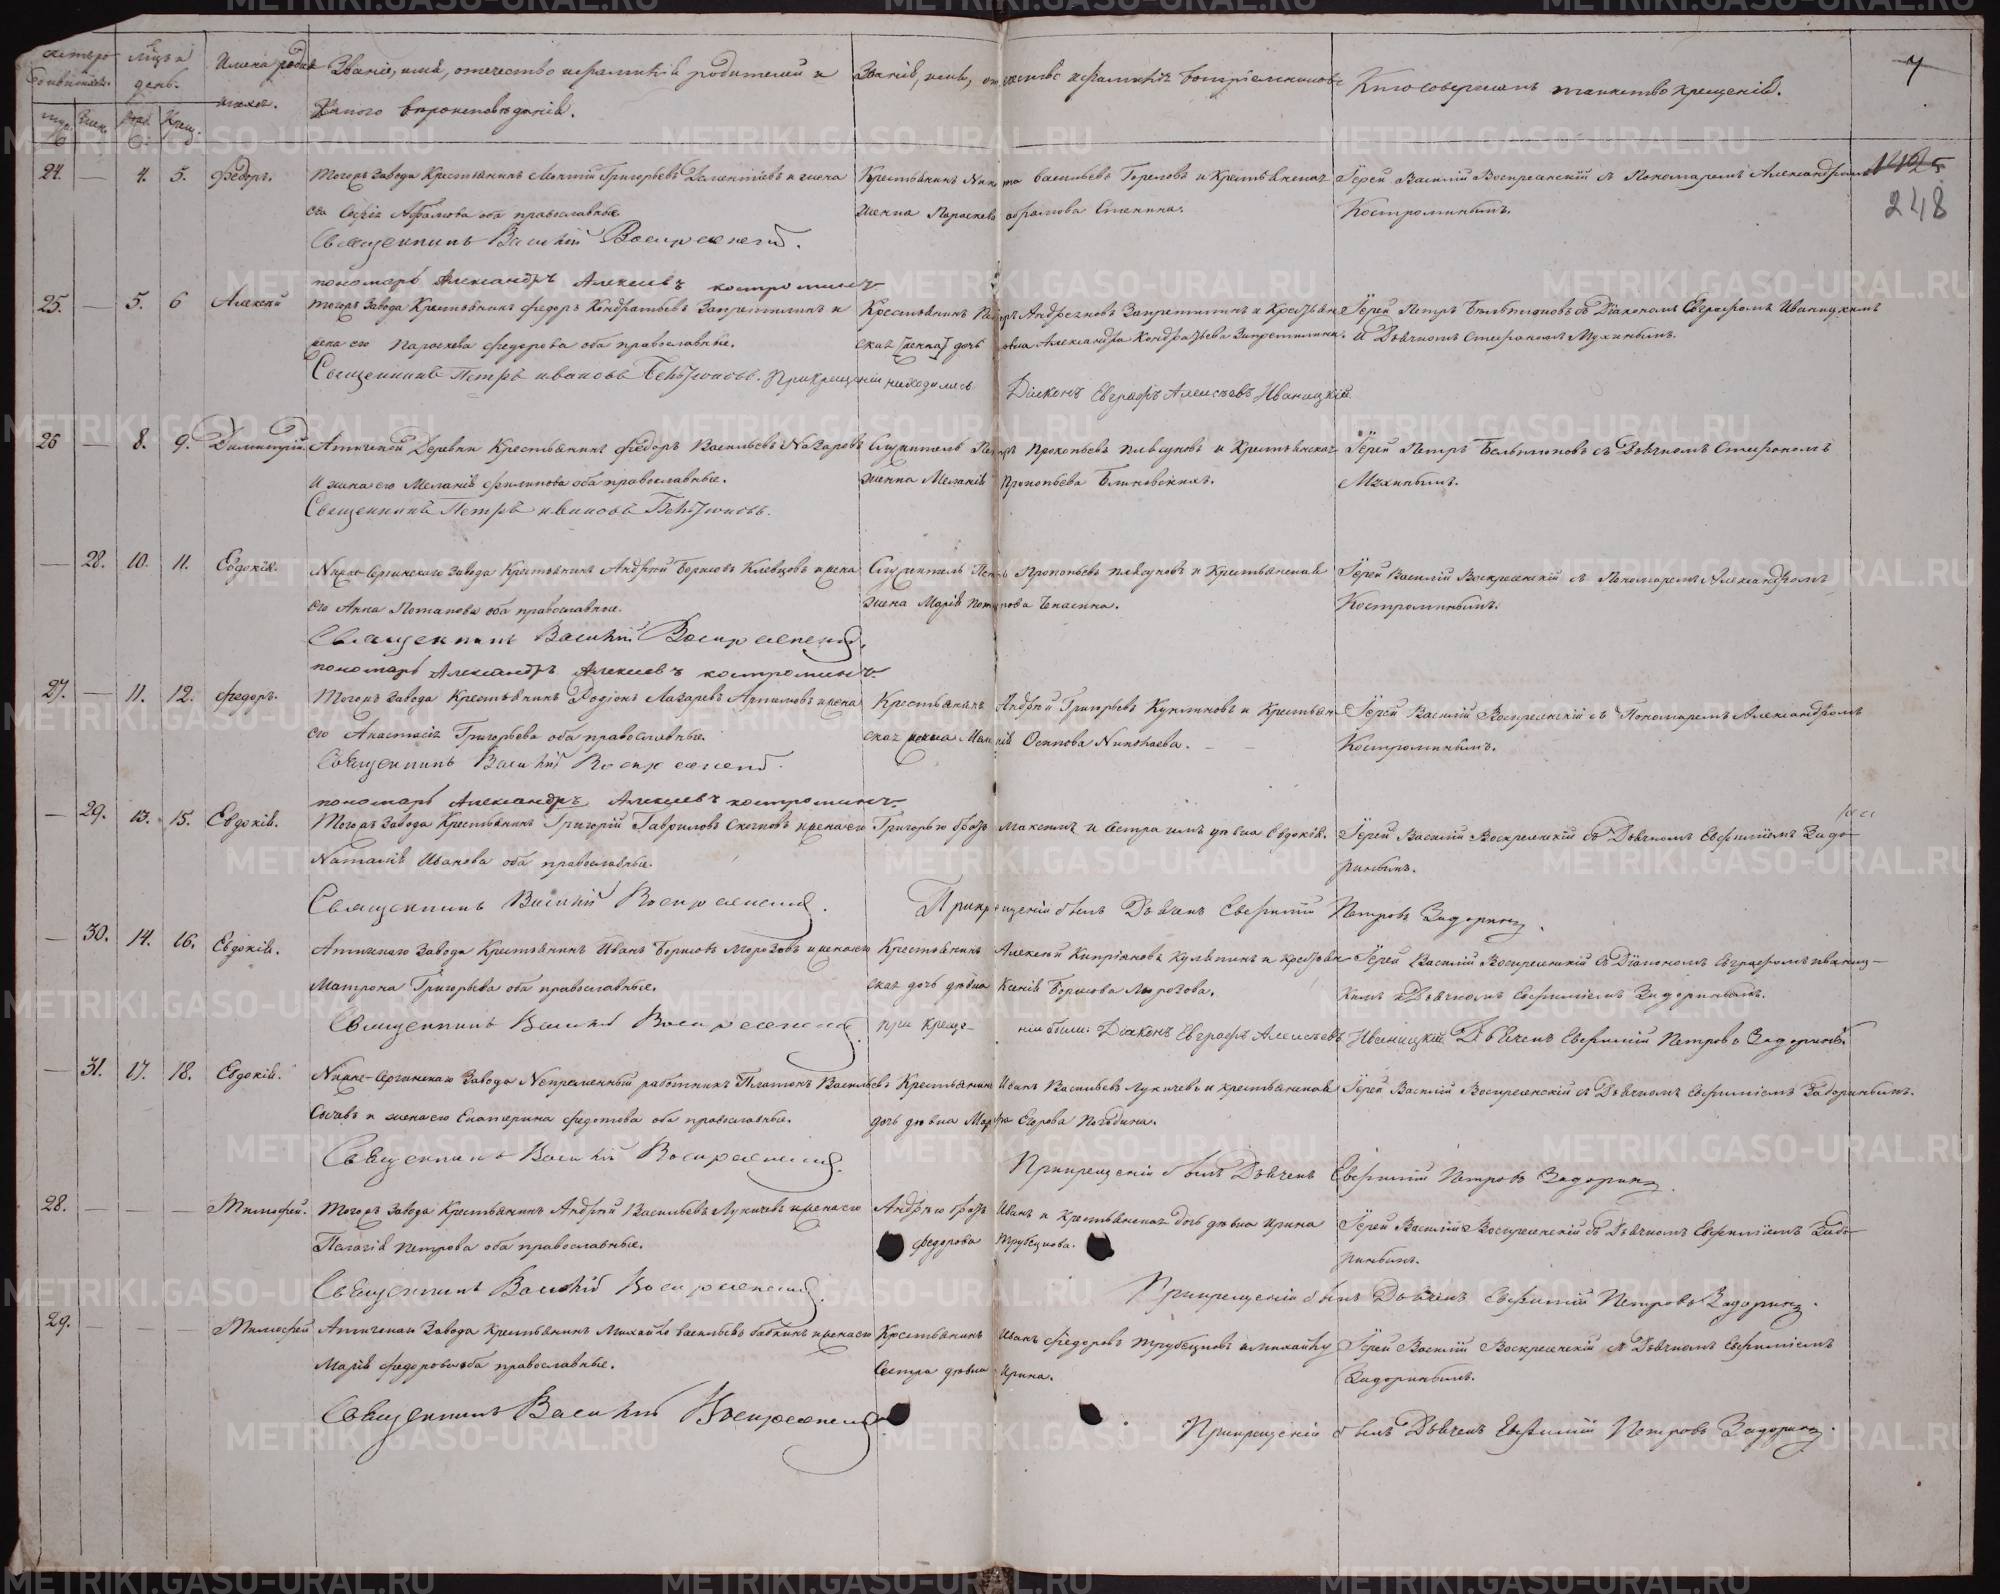 Мѣсяцъ и день.
Имена родившихся.
Званіе, имя, отчество и фамилія родителей и какого вѣроисповѣданія.
Званіе, имя, отчество и фамилія воспріемниковъ
Кто совершалъ таинство крещенія.
7
248
24. — 4. 5. Федоръ.
Тогожъ завода Крестьянинъ Григорьевъ Дементьевъ и жена
его Абрамова оба православные
Крестьянинъ Никита Васильевъ Гореловъ и Крестьянская
жена Параскева Абрамова
Іерей Василій Воскресенскій съ Пономаремъ Александромъ
Костроминымъ.
Священникъ Василій Воскресенскій.
пономарь Александръ Алексеевъ костроминъ
25. — 5. 6 Алексѣй
Тогожъ завода Крестьянинъ Федоръ Кондратьевъ Запретилинъ и
жена его Параскева Федорова оба православные.
Крестьянинъ Андреяновъ и Крестьян
ская дочь Александра Кондратьева
Іерей Петръ Бельтюковъ съ Діакономъ Евграфомъ Иваницкимъ
и Дьячкомъ Стефаномъ Мухинымъ.
Священникъ Петръ Ивановъ Бельтюковъ. При крещеніи находились
Діаконъ Евграфъ Алексѣевъ Иваницкій
26 — 8. 9. Димитрій
Деревни Крестьянинъ Федоръ Васильевъ Назаровъ
и жена его Меланія Филипова оба православные.
Служитель Петръ Прокопьевъ Плясуновъ и Крестьянская
женка Меланія Прокопьева
Іерей Петръ Бельтюковъ съ Дьячкомъ Стефаномъ
Мухинымъ.
Священникъ Петръ Ивановъ Бельтюковъ.
— 28. 10. 11. Евдокія.
Нижне-Сергинскаго завода Крестьянинъ Андрей Борисовъ Клевцовъ и жена
его Анна Потапова оба православные.
Служитель Петръ Прокопьевъ Плясуновъ и Крестьянская
жена Марія
Іерей Василій Воскресенскій съ Пономаремъ Александромъ
Костроминымъ.
Священникъ Василій Воскресенскій.
пономарь Александръ Алексеевъ костроминъ
27. — 11. 12. Федоръ.
Тогожъ завода Крестьянинъ Родіонъ Лазаревъ и жена
его Анастасія Григорьева оба православные.
Крестьянинъ Андрей Григорьевъ и Крестьян
ская женка Осипова Николаева.
Іерей Василій Воскресенскій съ Пономаремъ Александромъ
Костроминымъ.
Священникъ Василій Воскресенскій.
пономарь Александръ Алексеевъ костроминъ
— 29. 13. 15. Евдокія.
Тогожъ завода Крестьянинъ Григорій Гавриловъ и жена его
Наталія Иванова оба православные.
Григорью братъ Максимъ и сестра имъ дѣвка Евдокія.
Іерей Василій Воскресенскій съ Дьячкомъ Евфиміемъ Задо
ринымъ.
Священникъ Василій Воскресенскій.
При крещеніи былъ Дьячекъ Евфимій Петровъ Задоринъ.
— 30. 14. 16. Евдокія.
Завода Крестьянинъ Иванъ Борисовъ Морозовъ и жена его
Матрона Григорьева оба православные.
Крестьянинъ Алексѣй Кипріановъ и крестьян
ская дочь дѣвка Ксенія Борисова Морозова.
Іерей Василій Воскресенскій съ Діакономъ Евграфомъ Иваниц
кимъ и Дьячкомъ Евфиміемъ Задоринымъ.
Священникъ Василій Воскресенскій.
при креще
ніи были: Діаконъ Евграфъ Алексѣевъ Иваницкій Дьячекъ Евфимій Петровъ Задоринъ.
— 31. 17. 18. Евдокія.
Нижне-Сергинскаго Завода Непременный работникъ Платонъ Васильевъ
и жена его Екатерина Федотова оба православные.
Крестьянинъ Иванъ Васильевъ Лукичевъ и крестьянская
дочь дѣвка Егорова
Іерей Василій Воскресенскій съ Дьячкомъ Евфиміемъ Задоринымъ.
Священникъ Василій Воскресенскій.
При крещеніи былъ Дьячекъ Евфимій Петровъ Задоринъ.
28. — — — Тимофей.
Тогожъ завода Крестьянинъ Андрей Васильевъ Лукичевъ и жена его
Пелагія Петрова оба православные.
Андрею братъ Иванъ и крестьянская дочь дѣвка Ирина
Федорова Трубецкова.
Іерей Василій Воскресенскій съ Дьячкомъ Евфиміемъ Задо
ринымъ.
Священникъ Василій Воскресенскій.
При крещеніи былъ Дьячекъ Евфимій Петровъ Задоринъ.
29. — — — Тимофей
Завода Крестьянинъ Михайло Васильевъ Бабкинъ и жена его
Марія Федорова оба православные.
Крестьянинъ Иванъ Федоровъ Трубецковъ и Михайлу
Сестра дѣвка Ирина.
Іерей Василій Воскресенскій съ Дьячкомъ Евфиміемъ
Задоринымъ.
Священникъ Василій Воскресенскій
При крещеніи былъ Дьячекъ Евфимій Петровъ Задоринъ.
METRIKI.GASO-URAL.RU